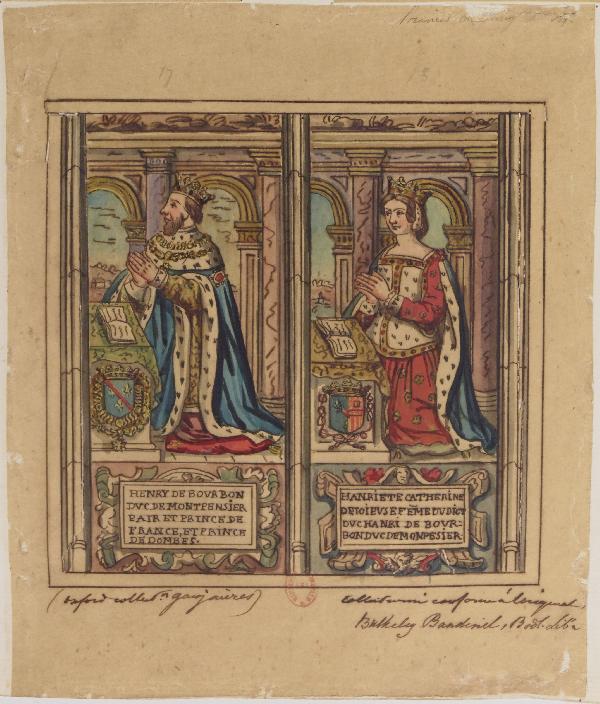 17
HENRY DE BOVRBON
DVC DE MONTPENSIER
PAIR ET PRINCE DE
FRANCE, ET PRINCE
DE DOMBES.
HANRIETE CATHERINE
DE IOIEVSE FĒME DUDICT
DUC HANRI DE BOUR-
BON DVC DE MONPESIER
(oxford collect.n gaignières)
conforme à l'original,
Bulkeley Bandinel, Bodl. Libn